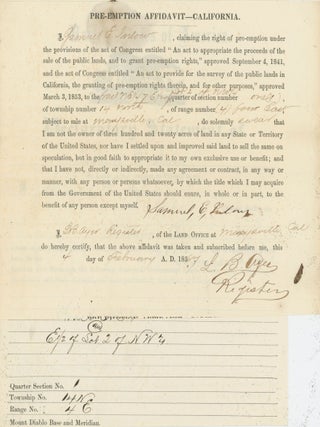 PRE-EMPTION AFFIDAVIT—CALIFORNIA.
I, Samuel E. claiming the right of pre-emption under
the provisions of the act of Congress entitled "An act to appropriate the proceeds of the
sale of the public lands, and to grant pre-emption rights," approved September 4, 1841,
and the act of Congress entitled "An act to provide for the survey of the public lands in
California, the granting of pre-emption rights therein, and for other purposes," approved
March 3, 1853, to the quarter of section number one,
of township number 14 North, of range number 4 East
subject to sale at Marysville, Cal, do solemnly swear that
I am not the owner of three hundred and twenty acres of land in any State or Territory of
the United States, nor have I settled upon and improved said land to sell the same on
speculation, but in good faith to appropriate it to my own exclusive use or benefit; and
that I have not, directly or indirectly, made any agreement or contract, in any way or
manner, with any person or persons whatsoever, by which the title which I may acquire
from the Government of the United States should enure, in whole or in part, to the
benefit of any person except myself.
Samuel E.
I, Register, of the LAND OFFICE at Marysville, Cal
do hereby certify, that the above affidavit was taken and subscribed before me, this
4 day of February A. D. 185
T L B
Register
of Lot 2 of N W 4
Quarter Section No. 1
Township No. 14 N
Range No. 4 E
Mount Diablo Base and Meridian.